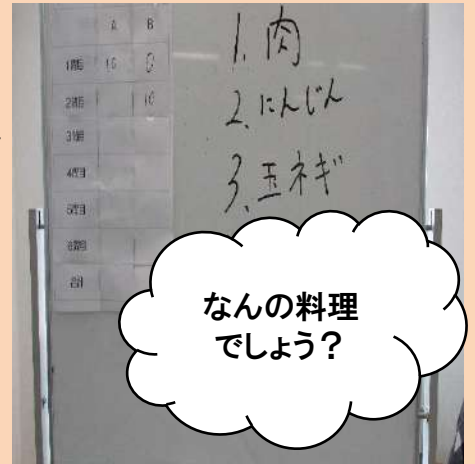 A B
1問目 10 0
2問目 10
3問目
4問目
5問目
合計
1. 肉
2. にんじん
3. 玉ネギ
なんの料理
でしょう?